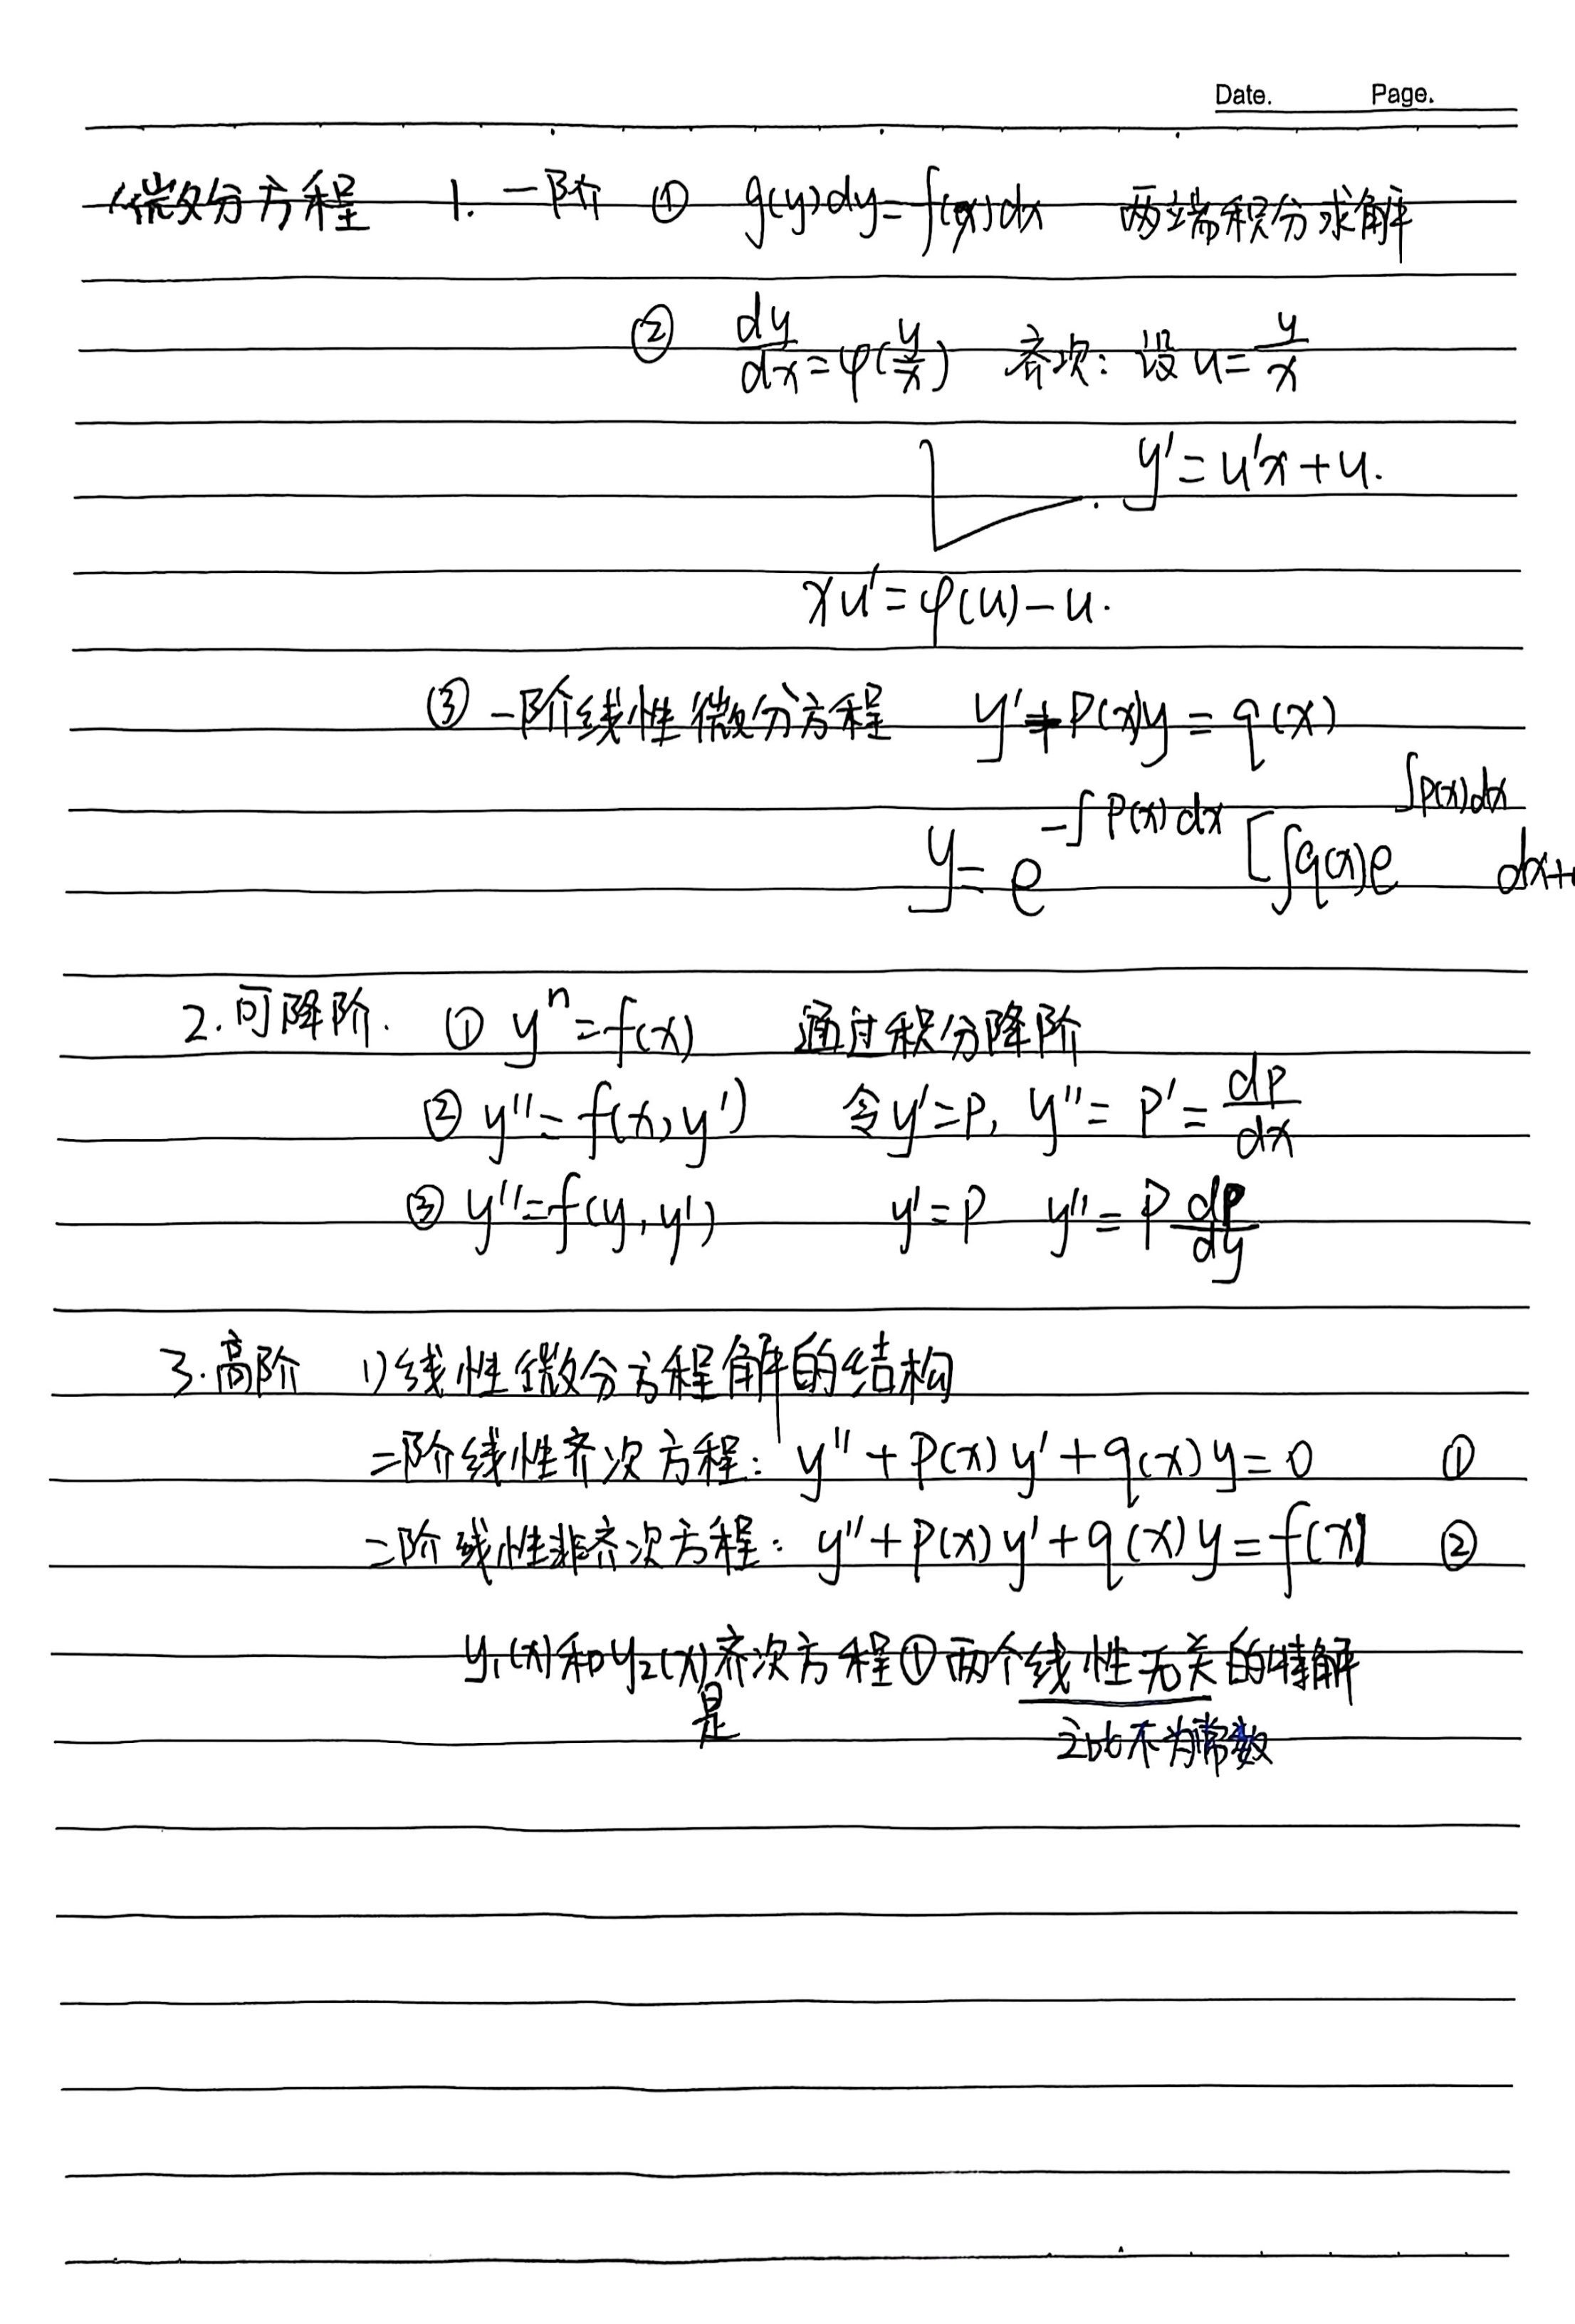 Date. Page.
微分方程 1. 一阶 ① g(y)dy=f(x)dx 两端积分求解
② dy/dx=φ(y/x) 齐次: 设 u=y/x
y'=u'x+u.
xu'=φ(u)-u.
③ 一阶线性微分方程 y'+P(x)y=q(x)
y=e^{-∫P(x)dx}[∫q(x)e^{∫P(x)dx}dx+
2.可降阶. ① y^n=f(x) 通过积分降阶
② y''=f(x,y') 令y'=P, y''=P'=dP/dx
③ y''=f(y,y') y'=P y''=P dP/dy
3.高阶 1)线性微分方程解的结构
二阶线性齐次方程: y''+P(x)y'+q(x)y=0 ①
二阶线性非齐次方程: y''+P(x)y'+q(x)y=f(x) ②
y₁(x)和y₂(x)齐次方程①两个线性无关的特解
是
之比不为常数